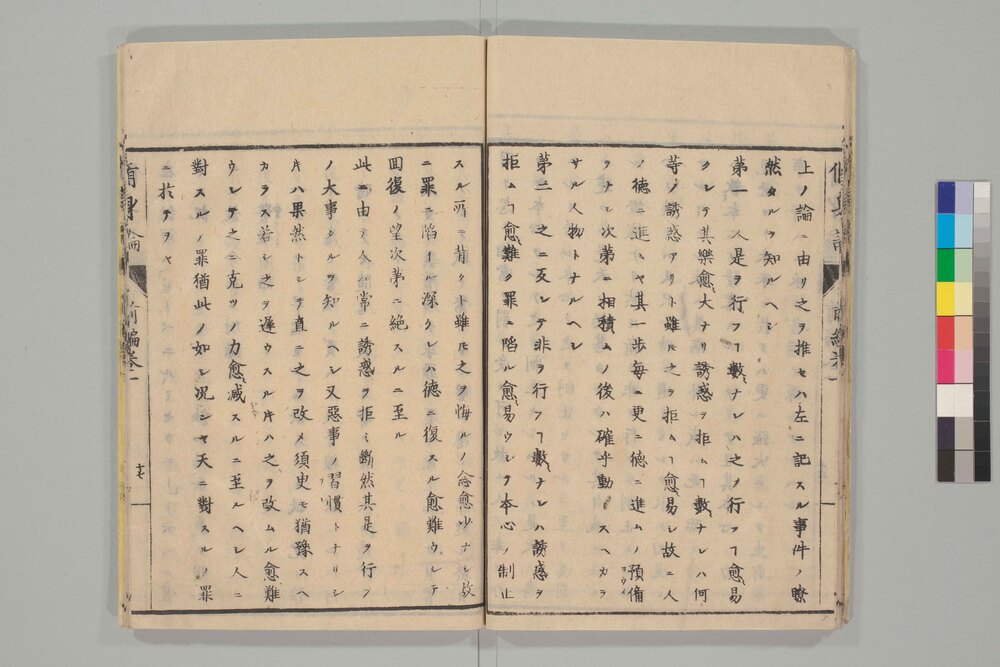 上ノ論ニ由リ之ヲ推セハ左ニ記スル事件ノ瞭
然タルヲ知ルヘシ
第一 人是ヲ行フヿ數〻ナレハ之ヲ行フヿ愈〻易
クシテ其樂愈〻大ナリ誘惑ヲ拒ムヿ數〻ナレハ何
等ノ誘惑アリト雖𪜈之ヲ拒ムヿ愈〻易シ故ニ人
ノ德ニ進ムヤ其一步每ニ更ニ德ニ進ムノ預備
ヨウイ
ヲナシ次第ニ相積ムノ後ハ確乎動スヘカラ
サル人物トナルヘシ
第二 之ニ反シテ非ヲ行フヿ數〻ナレハ誘惑ヲ
拒ムヿ愈〻難ク罪ニ陷ル愈〻易ウシテ本心ノ制止
スル所ニ背クト雖𪜈之ヲ悔ルノ念愈少ナシ故
ニ罪ニ陷イル深ケレハ德ニ復スル愈難ウシテ
回復ノ望次第ニ絕スルニ至ル
此ニ由テ人常ニ誘惑ヲ拒ミ斷然其是ヲ行フ
ノ大事ナルヲ知ルヘシ又惡事ノ習慣トナリシ
片ハ果然トシテ直ニ之ヲ改メ須臾モ猶豫スヘ
カラス若シ之ヲ遲ウスル片ハ之ヲ改ムル愈難
ウシテ之ニ克ツノ力愈〻減スルニ至ルヘシ人ニ
對スルノ罪猶此ノ如シ況ンヤ天ニ對スルノ罪
ニ於テヲヤ
脩身論
前編卷一
十七